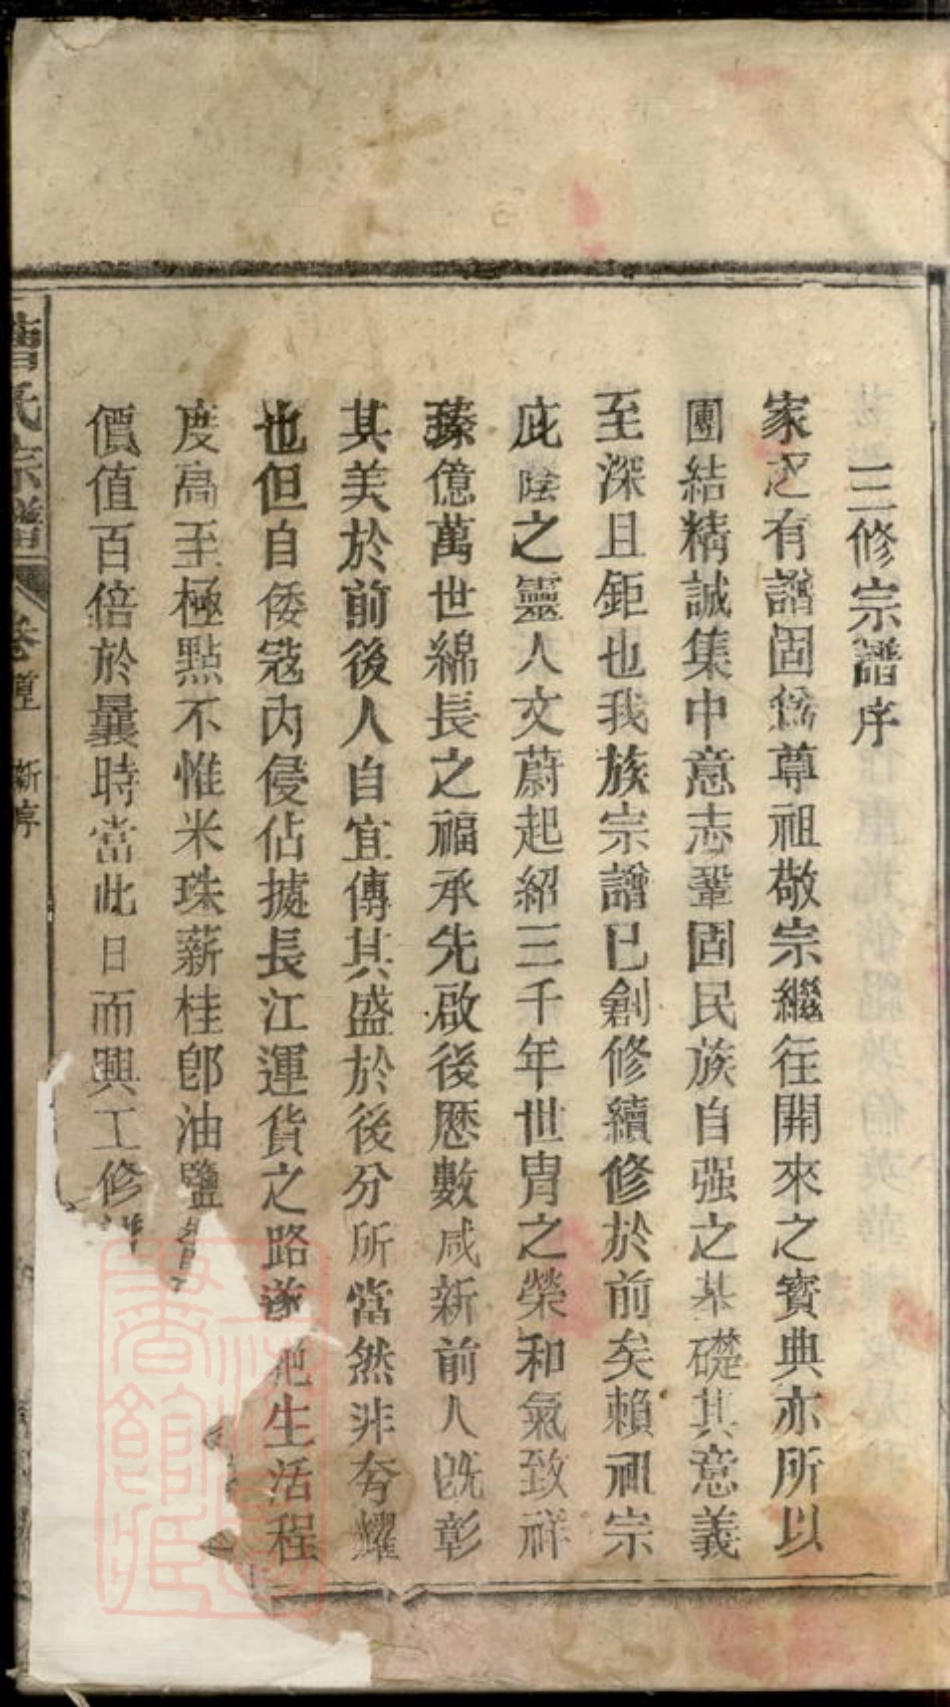 三修宗譜序
家之有譜固為尊祖敬宗繼往開來之寳典亦所以
團結精誠集中意志鞏固民族自强之基礎其意義
至深且鉅也我族宗譜已創修續修於前矣賴祖宗
庇陰之靈人文蔚起紹三千年世胄之榮和氣致祥
臻億萬世綿長之福承先啟後歴數咸新前人既彰
其美於前後人自宜傳其盛於後分所當然非夸耀
也但自倭寇內侵佔據長江運貨之路遂 生活程
度高至極點不惟米珠薪桂卽油鹽
價值百倍於曩時當此日而興工修
氏宗譜 卷首 新序